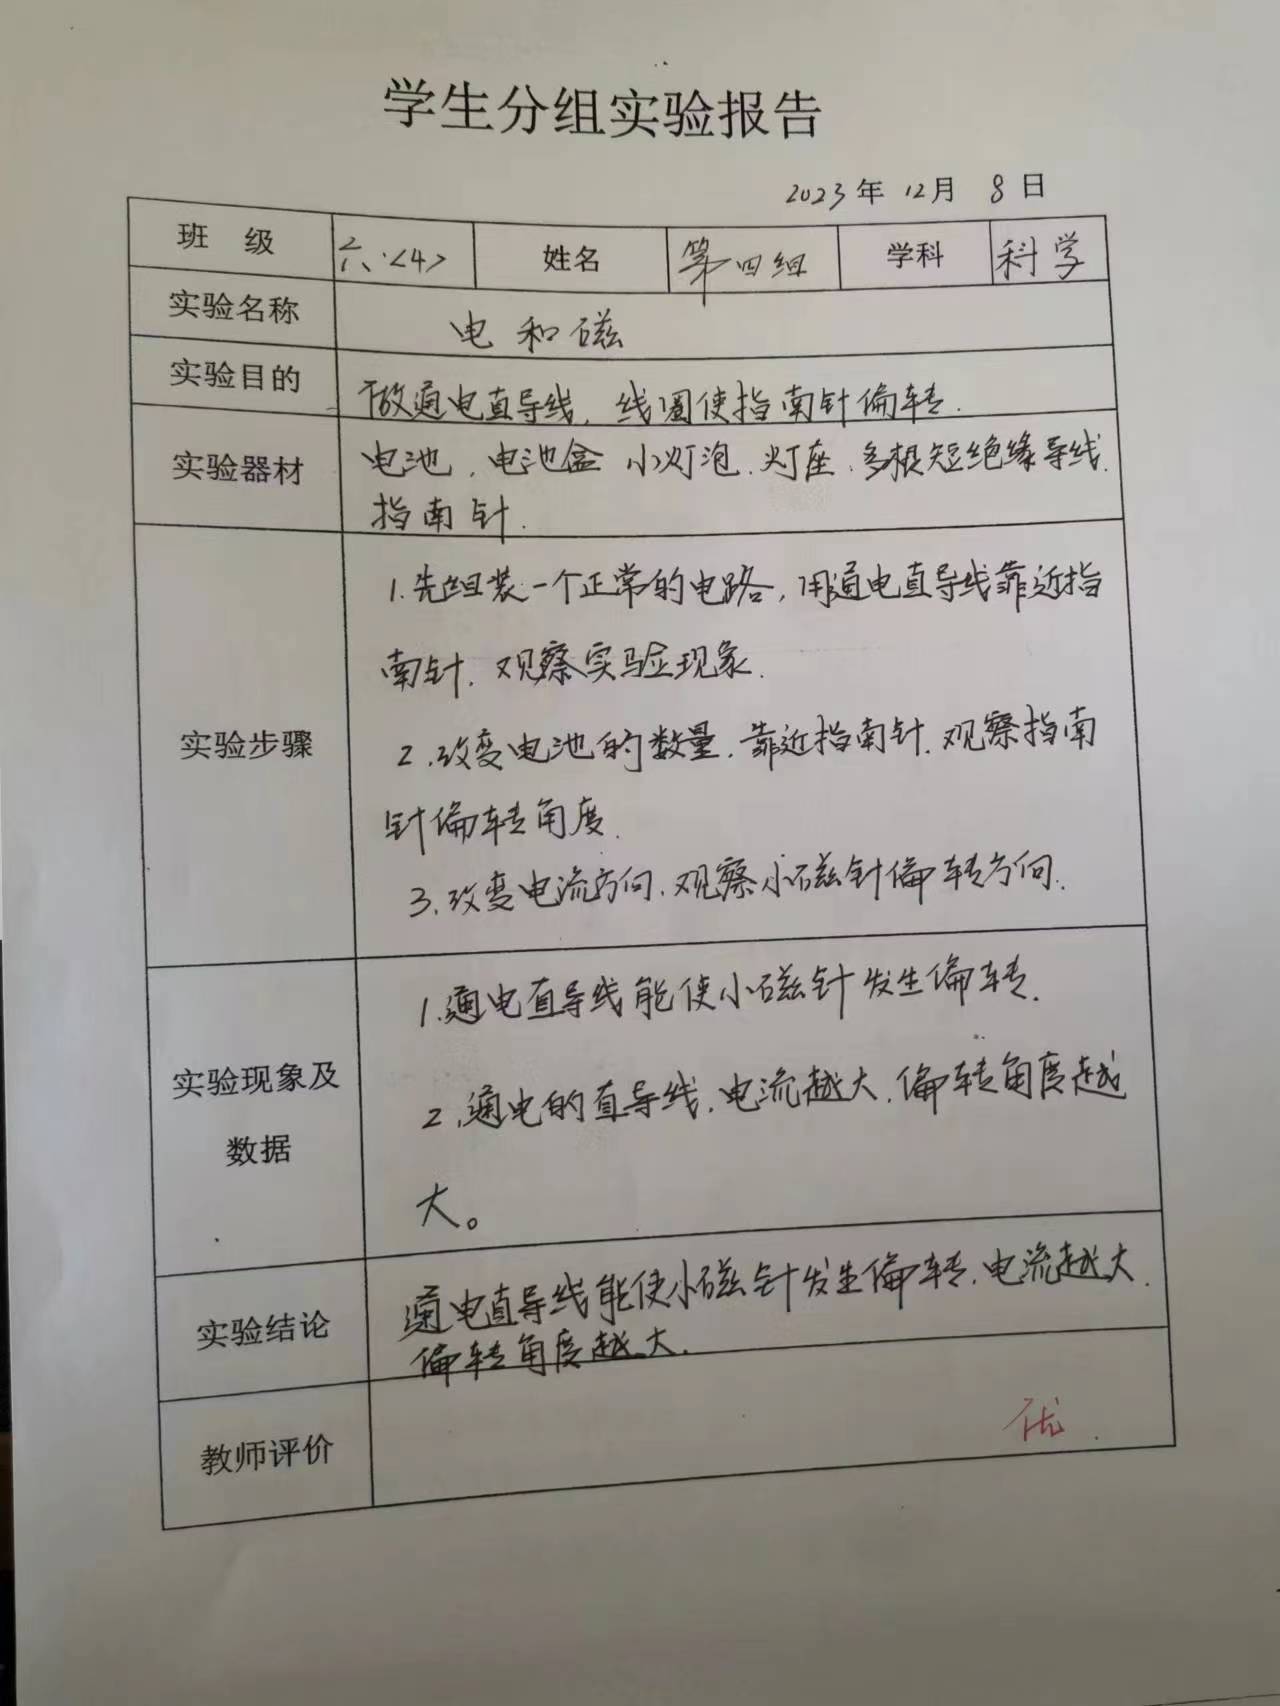 学生分组实验报告
2023年 12月 8日
班 级 六.<4> 姓名 第四组 学科 科学
实验名称 电和磁
实验目的 做通电直导线、线圈使指南针偏转.
实验器材 电池、电池盒 小灯泡、灯座、多根短绝缘导线、
指南针.
实验步骤
1.先组装一个正常的电路，用通电直导线靠近指
南针、观察实验现象.
2.改变电池的数量、靠近指南针、观察指南
针偏转角度.
3.改变电流方向、观察小磁针偏转方向.
实验现象及
数据
1.通电直导线能使小磁针发生偏转.
2.通电的直导线、电流越大、偏转角度越
大。
实验结论 通电直导线能使小磁针发生偏转、电流越大、
偏转角度越大.
教师评价 优.